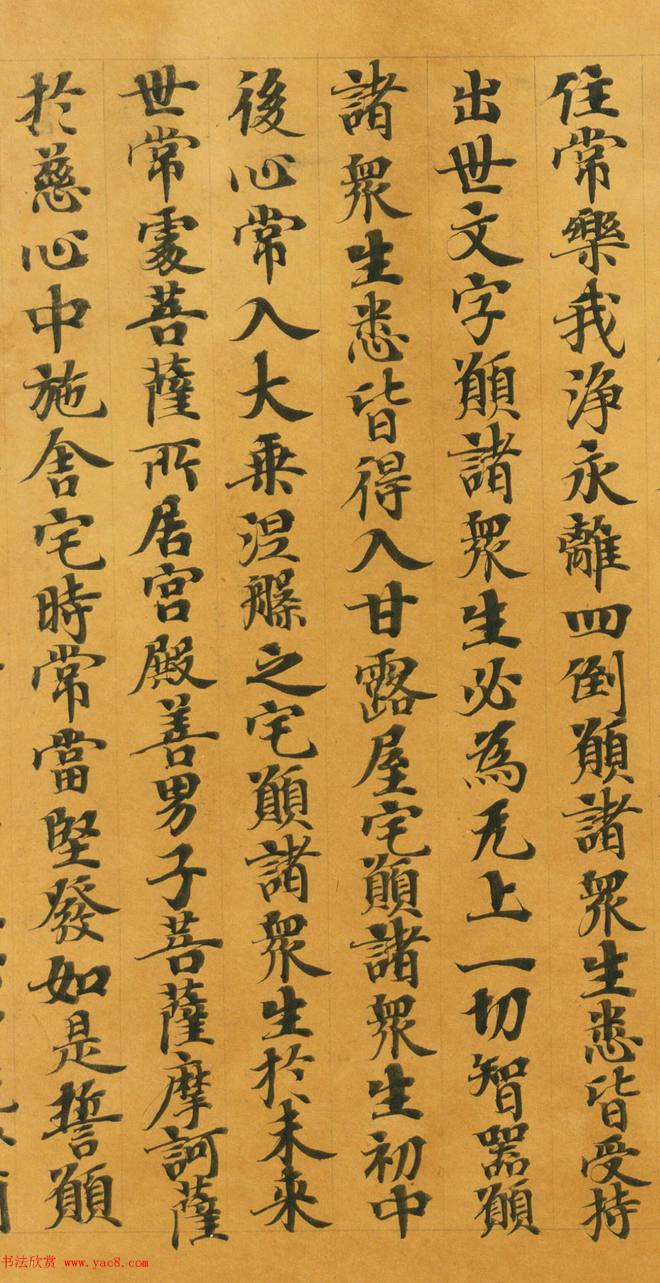 住常樂我淨永離四倒願諸衆生悉皆受持
出世文字願諸衆生必為无上一切智器願
諸衆生悉皆得入甘露屋宅願諸衆生初中
後心常入大乗涅槃之宅願諸衆生於未来
世常處菩薩所居宮殿善男子菩薩摩訶薩
於慈心中施舎宅時常當堅發如是誓願
书法欣赏 www.yac8.com